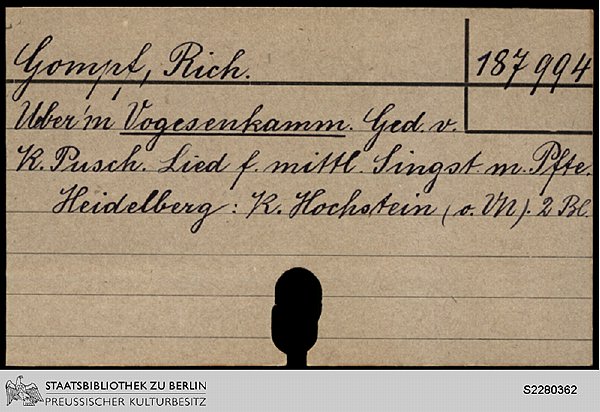 Gompf, Rich.
187 994
Über'm Vogesenkamm. Ged. v.
K. Pusch. Lied f. mittl. Singst. m. Pfte.
Heidelberg: K. Hochstein (o. VN). 2 Bl.
STAATSBIBLIOTHEK ZU BERLIN
PREUSSISCHER KULTURBESITZ
S2280362